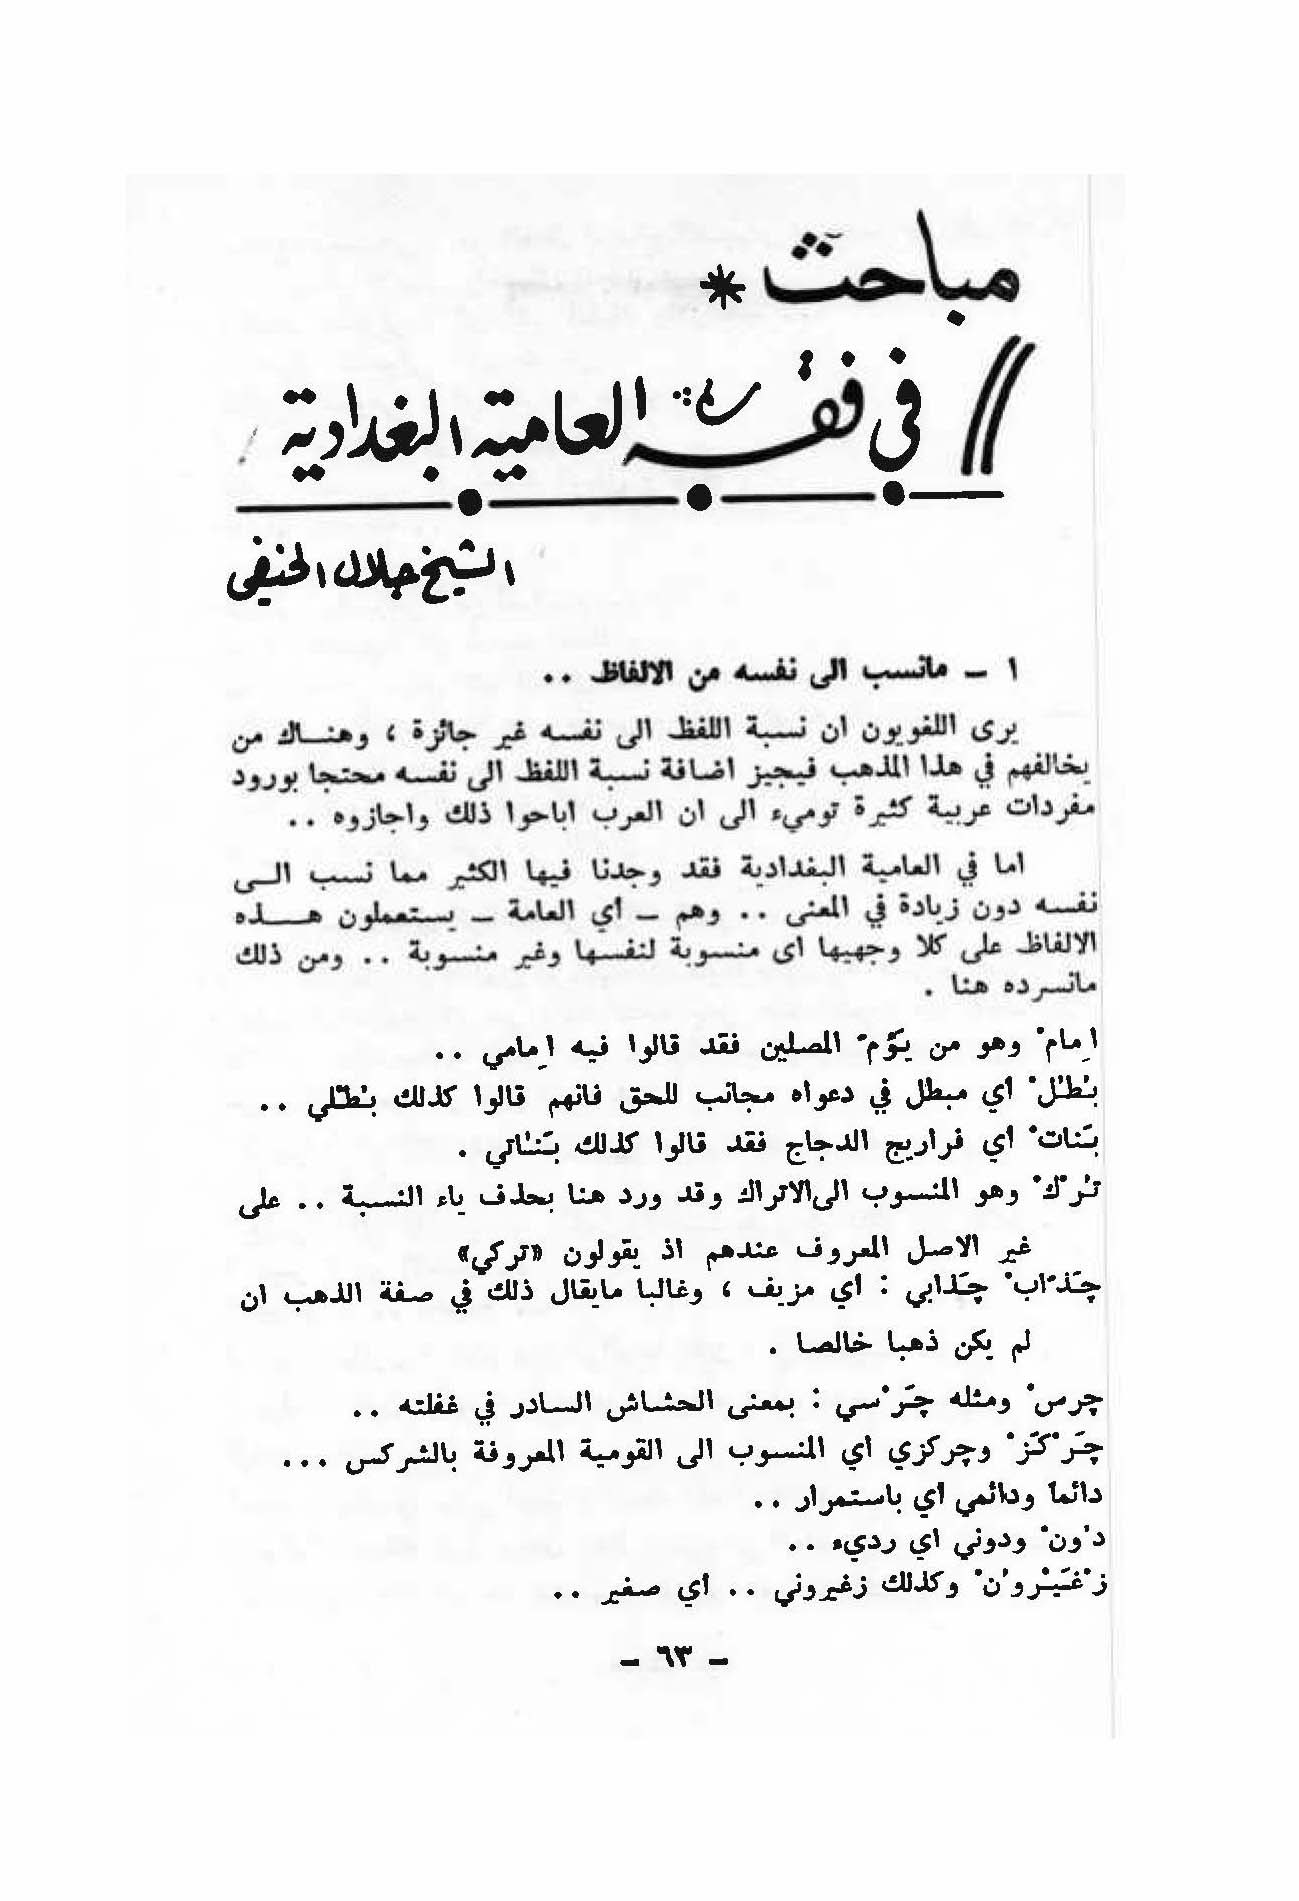 مباحث *
في فقه العامية البغدادية
الشيخ جلال الحنفي
١ - مانسب الى نفسه من الالفاظ ..
يرى اللغويون ان نسبة اللفظ الى نفسه غير جائزة ، وهناك من
يخالفهم في هذا المذهب فيجيز اضافة نسبة اللفظ الى نفسه محتجا بورود
مفردات عربية كثيرة توميء الى ان العرب اباحوا ذلك واجازوه ..
اما في العامية البغدادية فقد وجدنا فيها الكثير مما نسب الى
نفسه دون زيادة في المعنى .. وهم - أي العامة - يستعملون هذه
الالفاظ على كلا وجهيها اى منسوبة لنفسها وغير منسوبة .. ومن ذلك
مانسرده هنا .
اِمامْ وهو من يَؤُمّ المصلين فقد قالوا فيه اِمامي ..
بُطُلْ أي مبطل في دعواه مجانب للحق فانهم قالوا كذلك بُطُلي ..
بَناتْ أي فراريج الدجاج فقد قالوا كذلك بَناتي .
تُرْكْ وهو المنسوب الى الاتراك وقد ورد هنا بحذف ياء النسبة .. على
غير الاصل المعروف عندهم اذ يقولون «تركي»
چَذّابْ چَذابي : أي مزيف ، وغالبا مايقال ذلك في صفة الذهب ان
لم يكن ذهبا خالصا .
چرسْ ومثله چَرْسي : بمعنى الحشاش السادر في غفلته ..
چَرْكَزْ وچركزي أي المنسوب الى القومية المعروفة بالشركس ...
دائماً ودائمي أي باستمرار ..
دُونْ ودوني اي رديء ..
زْغَيْرونْ وكذلك زغيروني .. أي صغير ..
- ٦٣ -